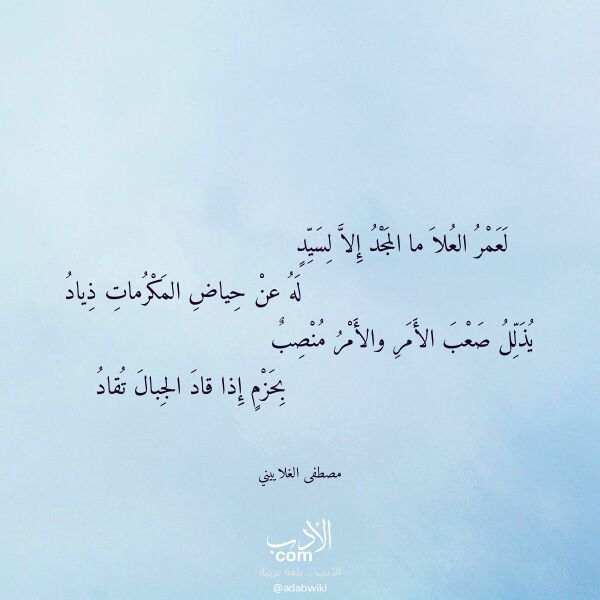 لَعَمْرُ العُلاَ ما المَجْدُ إِلاَّ لِسَيِّدٍ
لَهُ عنْ حِياضِ المَكْرُماتِ ذِيادُ
يُذَلِّلُ صَعْبَ الأَمَرِ والأَمْرُ مُنْصِبٌ
بِحَزْمٍ إِذا قادَ الجِبالَ تُقادُ
مصطفى الغلاييني
الأدب
com
الأدب .. بلغة عربية
@adabwiki